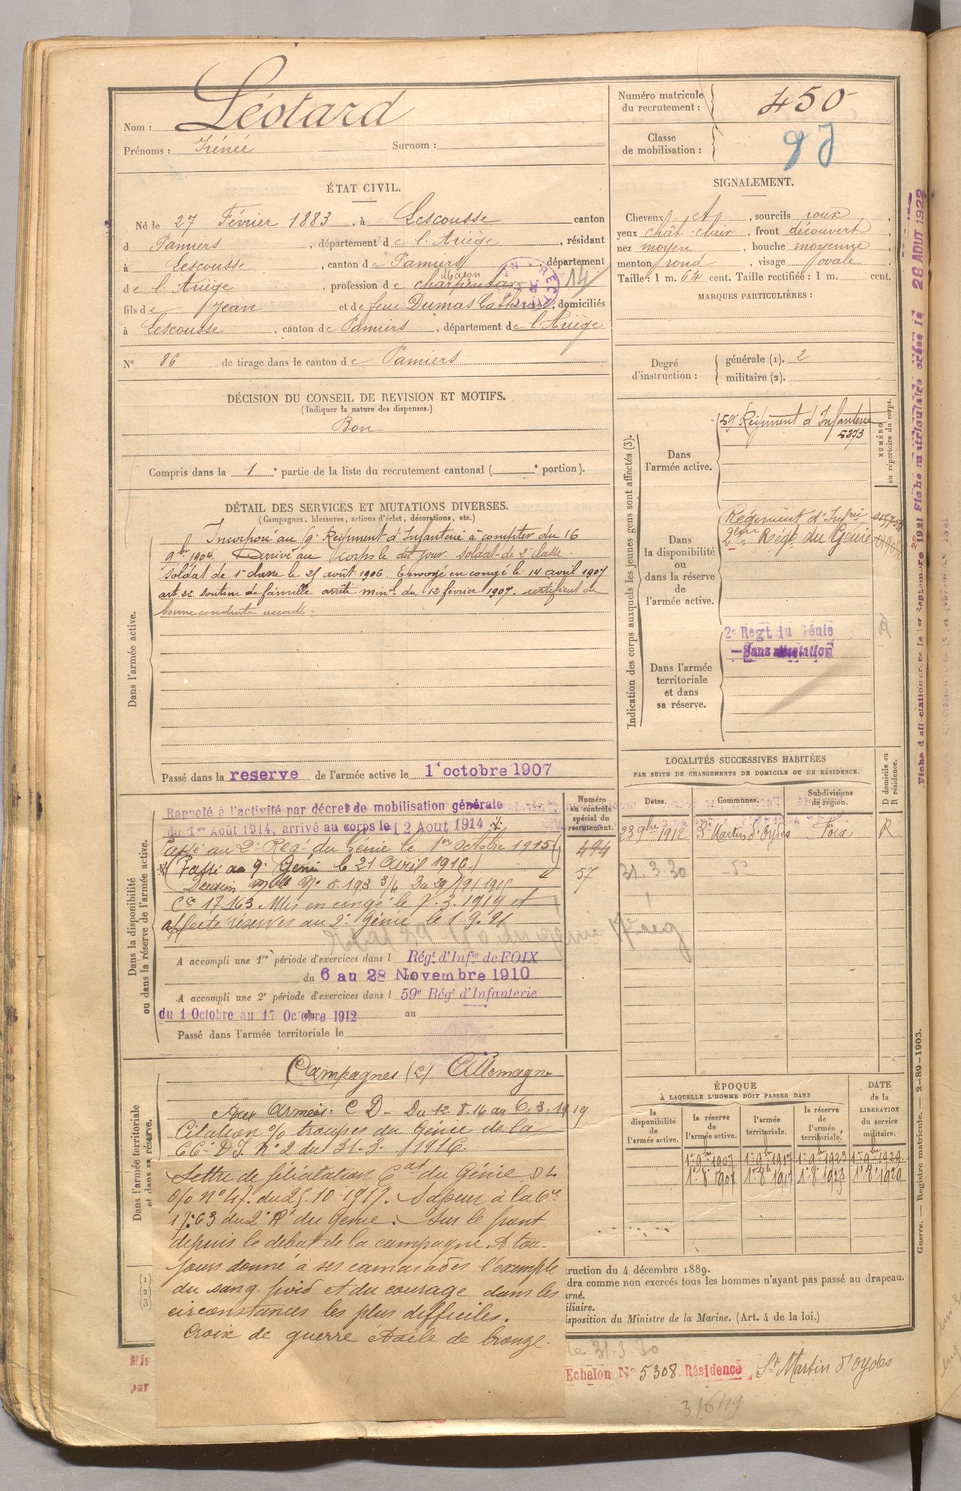 Nom : Léotard
Prénoms : Irénée Surnom :
Numéro matricule du recrutement : 450
Classe de mobilisation :
ÉTAT CIVIL.
Né le 27 Février 1883, à Lescousse canton
d Pamiers, département de l'Ariège, résidant
à Lescousse, canton de Pamiers, département
de l'Ariège, profession de charpentier maçon 14
fils de Jean et de feue Dumas Catherine, domiciliés
à Lescousse, canton de Pamiers, département de l'Ariège
N° 86 de tirage dans le canton de Pamiers
SIGNALEMENT.
Cheveux, sourcils roux,
yeux chât clair, front découvert
nez moyen, bouche moyenne
menton rond, visage ovale
Taille : 1 m. 64 cent. Taille rectifiée : 1 m. cent.
MARQUES PARTICULIÈRES :
Degré d'instruction : générale (1). 2
militaire (2).
DÉCISION DU CONSEIL DE REVISION ET MOTIFS.
(Indiquer la nature des dispenses.)
Bon
Compris dans la 1e partie de la liste du recrutement cantonal ( e portion).
DÉTAIL DES SERVICES ET MUTATIONS DIVERSES.
(Campagnes, blessures, actions d'éclat, décorations, etc.)
Dans l'armée active.
Incorporé au 9e Régiment d'Infanterie à compter du 16
9bre 1904. Arrivé au corps le dit jour. soldat de 2e classe.
Soldat de 1e classe le 25 août 1906. Envoyé en congé le 14 avril 1907
art 22 soutien de famille arrêté minel du 12 février 1907. certificat de
bonne conduite accordé.
Passé dans la reserve de l'armée active le 1er octobre 1907
Indication des corps auxquels les jeunes gens sont affectés (3).
NUMÉRO au répertoire du corps.
Dans l'armée active.
59e Régiment d'Infanterie
5273
Dans la disponibilité ou dans la réserve de l'armée active.
Régiment d'Infrie
2e Régt du Génie
Dans l'armée territoriale et dans sa réserve.
2e Regt du Génie
Sans affectation
LOCALITÉS SUCCESSIVES HABITÉES
PAR SUITE DE CHANGEMENTS DE DOMICILE OU DE RÉSIDENCE.
Dates. Communes. Subdivisions de région. D domicile ou R résidence.
23 9bre 1912 St Martin d'Oydes Foix R
31.3.20 do
Dans la disponibilité ou dans la réserve de l'armée active.
Numéro au contrôle spécial du recrutement.
Rappelé à l'activité par décret de mobilisation générale
du 1er Août 1914, arrivé au corps le 12 Aout 1914
Passé au 2e Rég. du Génie le 1er Octobre 1915
(Passé au 9e Génie le 21 Avril 1916.)
Cie 17.63 Mis en congé le 7.3.1919 et
affecté réserves au 2e Génie le 1.9.21
A accompli une 1re période d'exercices dans l Régt d'Infie de FOIX
du 6 au 28 Novembre 1910
A accompli une 2e période d'exercices dans l 59e Régt d'Infanterie
du 1 Octobre au 17 Octobre 1912 au
Passé dans l'armée territoriale le
Dans l'armée territoriale et dans sa réserve.
Campagnes (c) Allemagne
Aux Armées. C D - Du 12.8.14 au 6.3.1919
Citation o/ troupes du Génie de la
66e D.I. N° 2 du 31.3.1916.
du Génie
o/o N° 47. du 25.10.1917. Sapeur à la Cie
17.63 du 2e Rt du Génie. Sur le front
depuis le début de la campagne. A tou-
jours donné à ses camarades l'exemple
du sang froid et du courage dans les
circonstances les plus difficiles.
Croix de guerre étoile de bronze.
ÉPOQUE
À LAQUELLE L'HOMME DOIT PASSER DANS
la disponibilité de l'armée active. la réserve de l'armée active. l'armée territoriale. la réserve de l'armée territoriale.
DATE de la LIBÉRATION du service militaire.
1er 9bre 1907 1er 9bre 1917 1er 9bre 1923 1er 9bre 1929
ruction du 4 décembre 1889.
dra comme non exercés tous les hommes n'ayant pas passé au drapeau.
urné.
iliaire.
isposition du Ministre de la Marine. (Art. 4 de la loi.)
le 31.3.20
Echelon N° 5308 Résidence St Martin d'oydes
3/6/19
Guerre. — Registre matricule. — 2-89-1903.